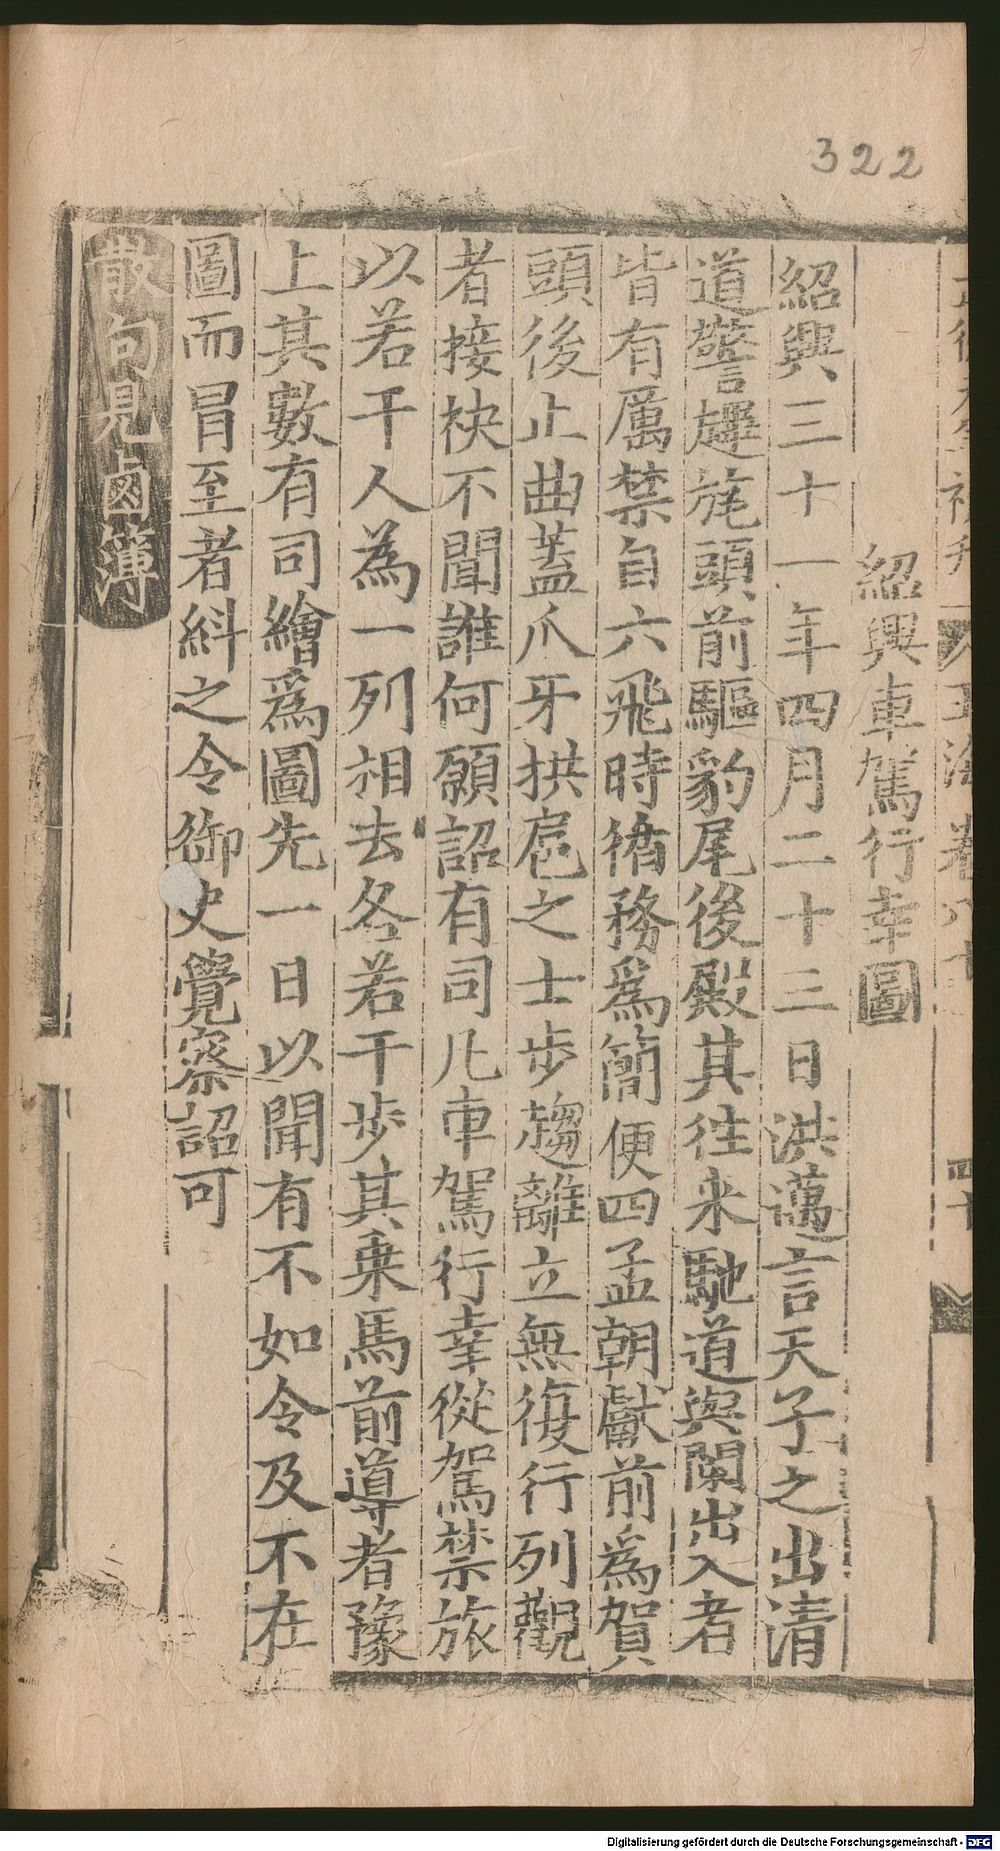 322
紹興車駕行幸圖
紹興三十一年四月二十三日洪邁言天子之出清
道警蹕旄頭前驅豹尾後殿其往來馳道與闌出入者
皆有厲禁自六飛時徆務爲簡便四孟朝獻前爲賀
頭後止曲蓋爪牙拱扈之士步趨離立無復行列觀
者接袂不聞誰何願詔有司凡車駕行幸從駕禁旅
以若干人為一列相去各若干步其乗馬前導者豫
上其數有司繪爲圖先一日以聞有不如令及不在
圖而冒至者糾之令御史覺察詔可
散句見鹵簿
Digitalisierung gefördert durch die Deutsche Forschungsgemeinschaft - DFG